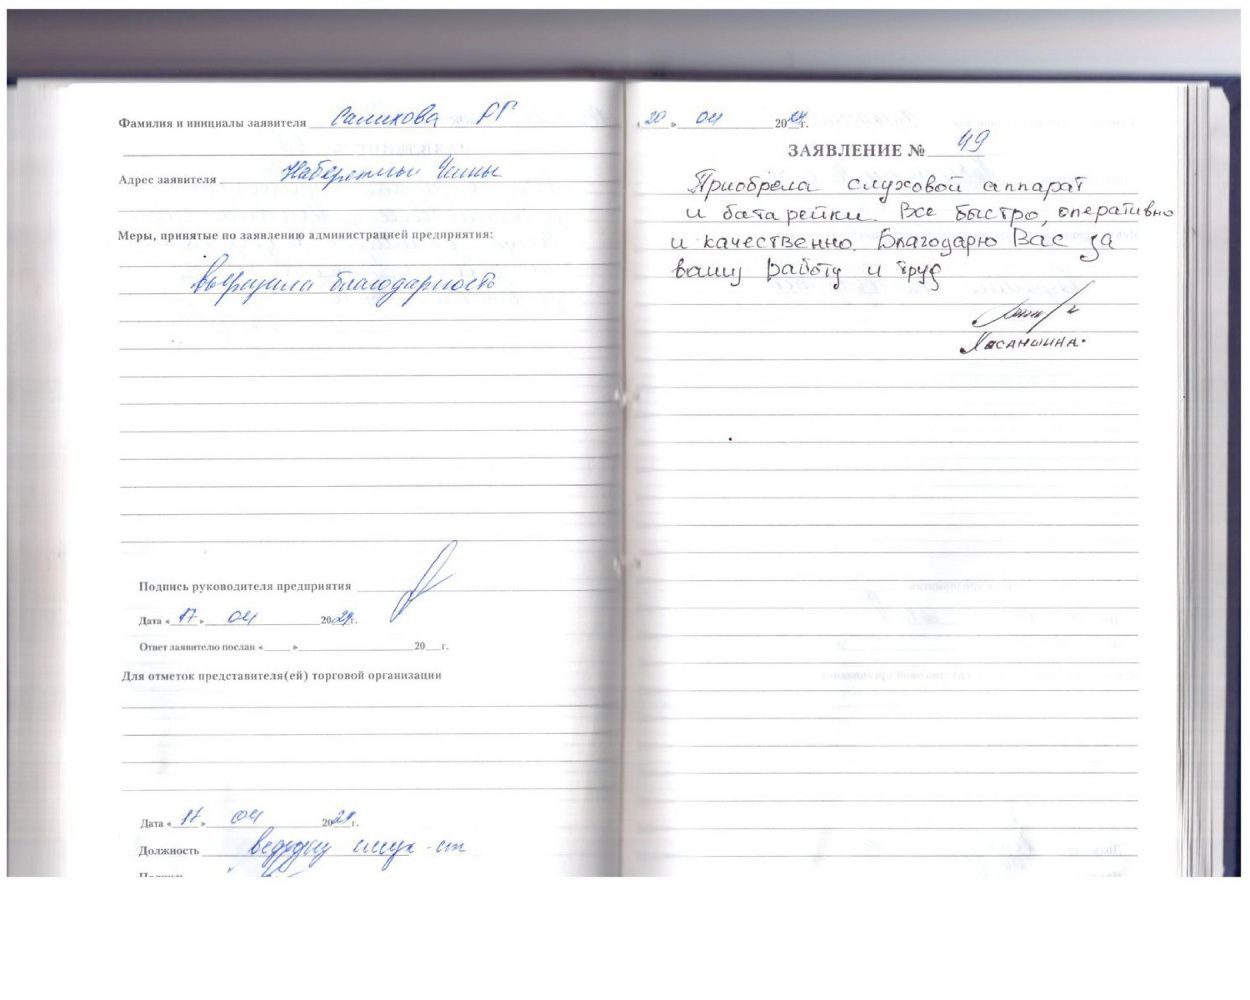 Фамилия и инициалы заявителя Салихова РГ
Адрес заявителя Набережные Челны
Меры, принятые по заявлению администрацией предприятия:
выразила благодарность
Подпись руководителя предприятия
Дата «17» 04 2024г.
Ответ заявителю послан «   » 20   г.
Для отметок представителя(ей) торговой организации
Дата «17» 04 2024г.
Должность ведущий
Подпись
«20» 04 2024г.
ЗАЯВЛЕНИЕ № 49
Приобрела слуховой аппарат
и батарейки. Все быстро, оперативно
и качественно. Благодарю Вас за
вашу работу и труд
Хасаншина.